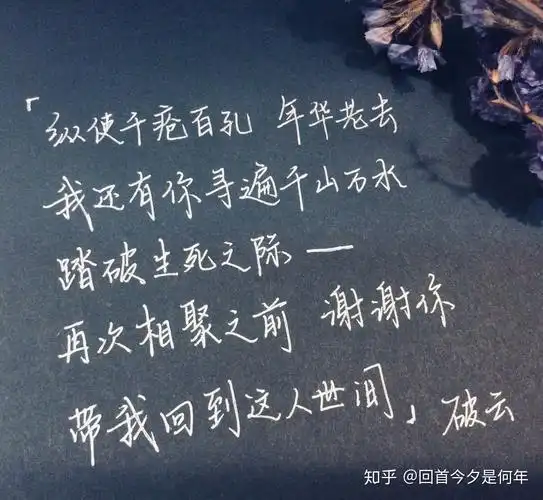 「纵使千疮百孔 年华老去
我还有你寻遍千山万水
踏破生死之际——
再次相聚之前 谢谢你
带我回到这人世间」 破云
知乎 @回首今夕是何年